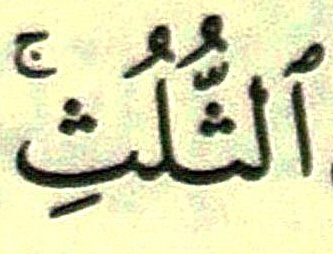 ٱلثُّلُثِۚ